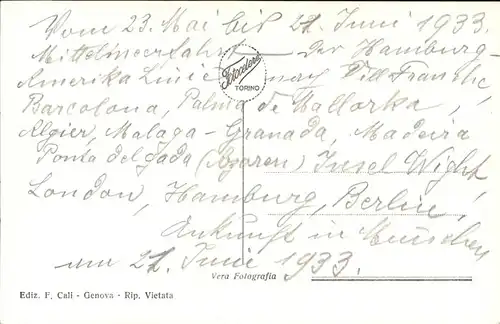 Vom 23. Mai bis 21. Juni 1933.
Mittelmeerfahrt — der Hamburg-
Amerika Linie nach Vill Franche,
Barcolona, Palma de Mallorka,
Algier, Malaga - Granada, Madeira
Ponta delgada (Azoren) Insel Wight,
London, Hamburg, Berlin,
Ankunft in München
am 21. Juni 1933.
Fotocelere
TORINO
Vera Fotografia
Ediz. F. Cali - Genova - Rip. Vietata